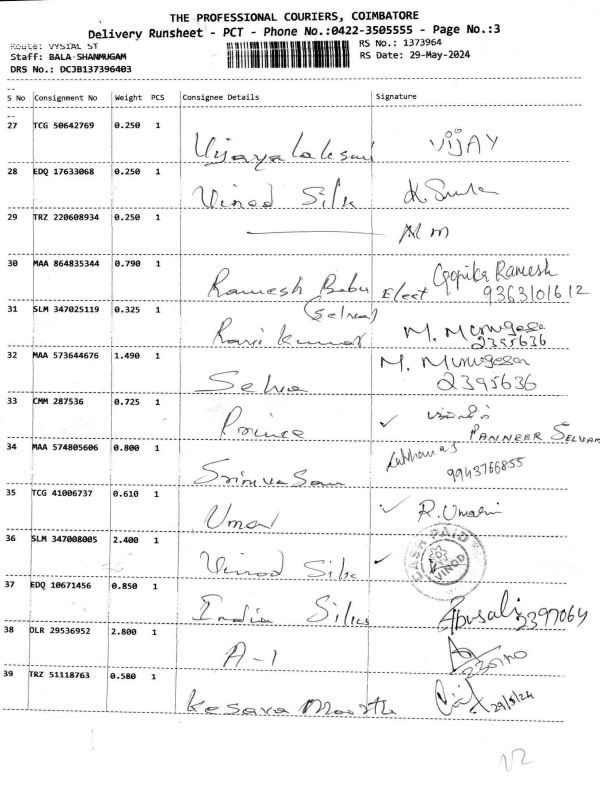 THE PROFESSIONAL COURIERS, COIMBATORE
Delivery Runsheet - PCT - Phone No.:0422-3505555 - Page No.:3
Route: VYSIAL ST
RS No.: 1373964
Staff: BALA SHANMUGAM
RS Date: 29-May-2024
DRS No.: DCJB137396403
S No Consignment No Weight PCS Consignee Details Signature
27 TCG 50642769 0.250 1 VIJAY
28 EDQ 17633068 0.250 1 Vinod Silk
29 TRZ 220608934 0.250 1
30 MAA 864835344 0.790 1 Ramesh Babu Elect Gopika Ramesh
9363101612
31 SLM 347025119 0.325 1 (Selva)
Ravi kumar M. Murugesa
2395636
32 MAA 573644676 1.490 1 Selva M. Murugesa
2395636
33 CMM 287536 0.725 1 Prince ✓
PANNEER SELVAM
34 MAA 574805606 0.800 1 Srinivasan
9943766855
35 TCG 41006737 0.610 1 Umar ✓ R. Umarni
36 SLM 347008005 2.400 1 Vinod Silk ✓ CASH PAID
VINOD
37 EDQ 10671456 0.850 1 India Silks 2397064
38 OLR 29536952 2.800 1 A-1
39 TRZ 51118763 0.580 1 Kesava 29/5/24